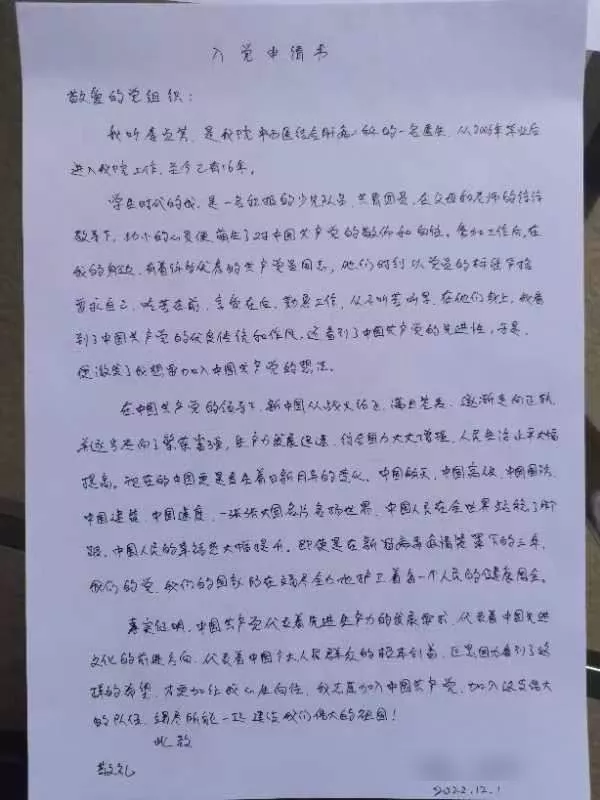 入党申请书
敬爱的党组织：
我叫 是我院中西医结合 科的一名医生，从2006年毕业后
进入我院工作，至今已有16年。
学生时代的我，是一名积极的少先队员、共青团员，在父母和老师的谆谆
教导下，幼小的心灵便萌生了对中国共产党的敬仰和向往。参加工作后，在
我的身边，有着许多优秀的共产党员同志，他们时刻以党员的标准严格
要求自己，吃苦在前，享受在后，勤恳工作，从不叫苦叫累，在他们身上，我看
到了中国共产党的优良传统和作风，还看到了中国共产党的先进性，于是，
便激发了我想要加入中国共产党的想法。
在中国共产党的领导下，新中国从战火纷飞、满目苍夷，逐渐走向正轨，
并逐步走向了繁荣富强，生产力发展迅速，综合国力大大增强，人民生活水平大幅
提高。现在的中国更是有着日新月异的变化。中国航天，中国高铁，中国国法，
中国建造，中国速度，一张张大国名片名扬世界，中国人民在全世界站稳了脚
跟，中国人民的幸福感大幅提升。即使是在新冠病毒疫情笼罩下的三年，
我们的党、我们的国家都在竭尽全力地护卫着每一个人民的健康周全。
事实证明，中国共产党代表着先进生产力的发展要求，代表着中国先进
文化的前进方向，代表着中国广大人民群众的根本利益，正是因为看到了这
样的希望，才更加让我心生向往，我志愿加入中国共产党，加入这支伟大
的队伍，竭尽所能一起建设我们伟大的祖国！
此致
敬礼
2022.12.1